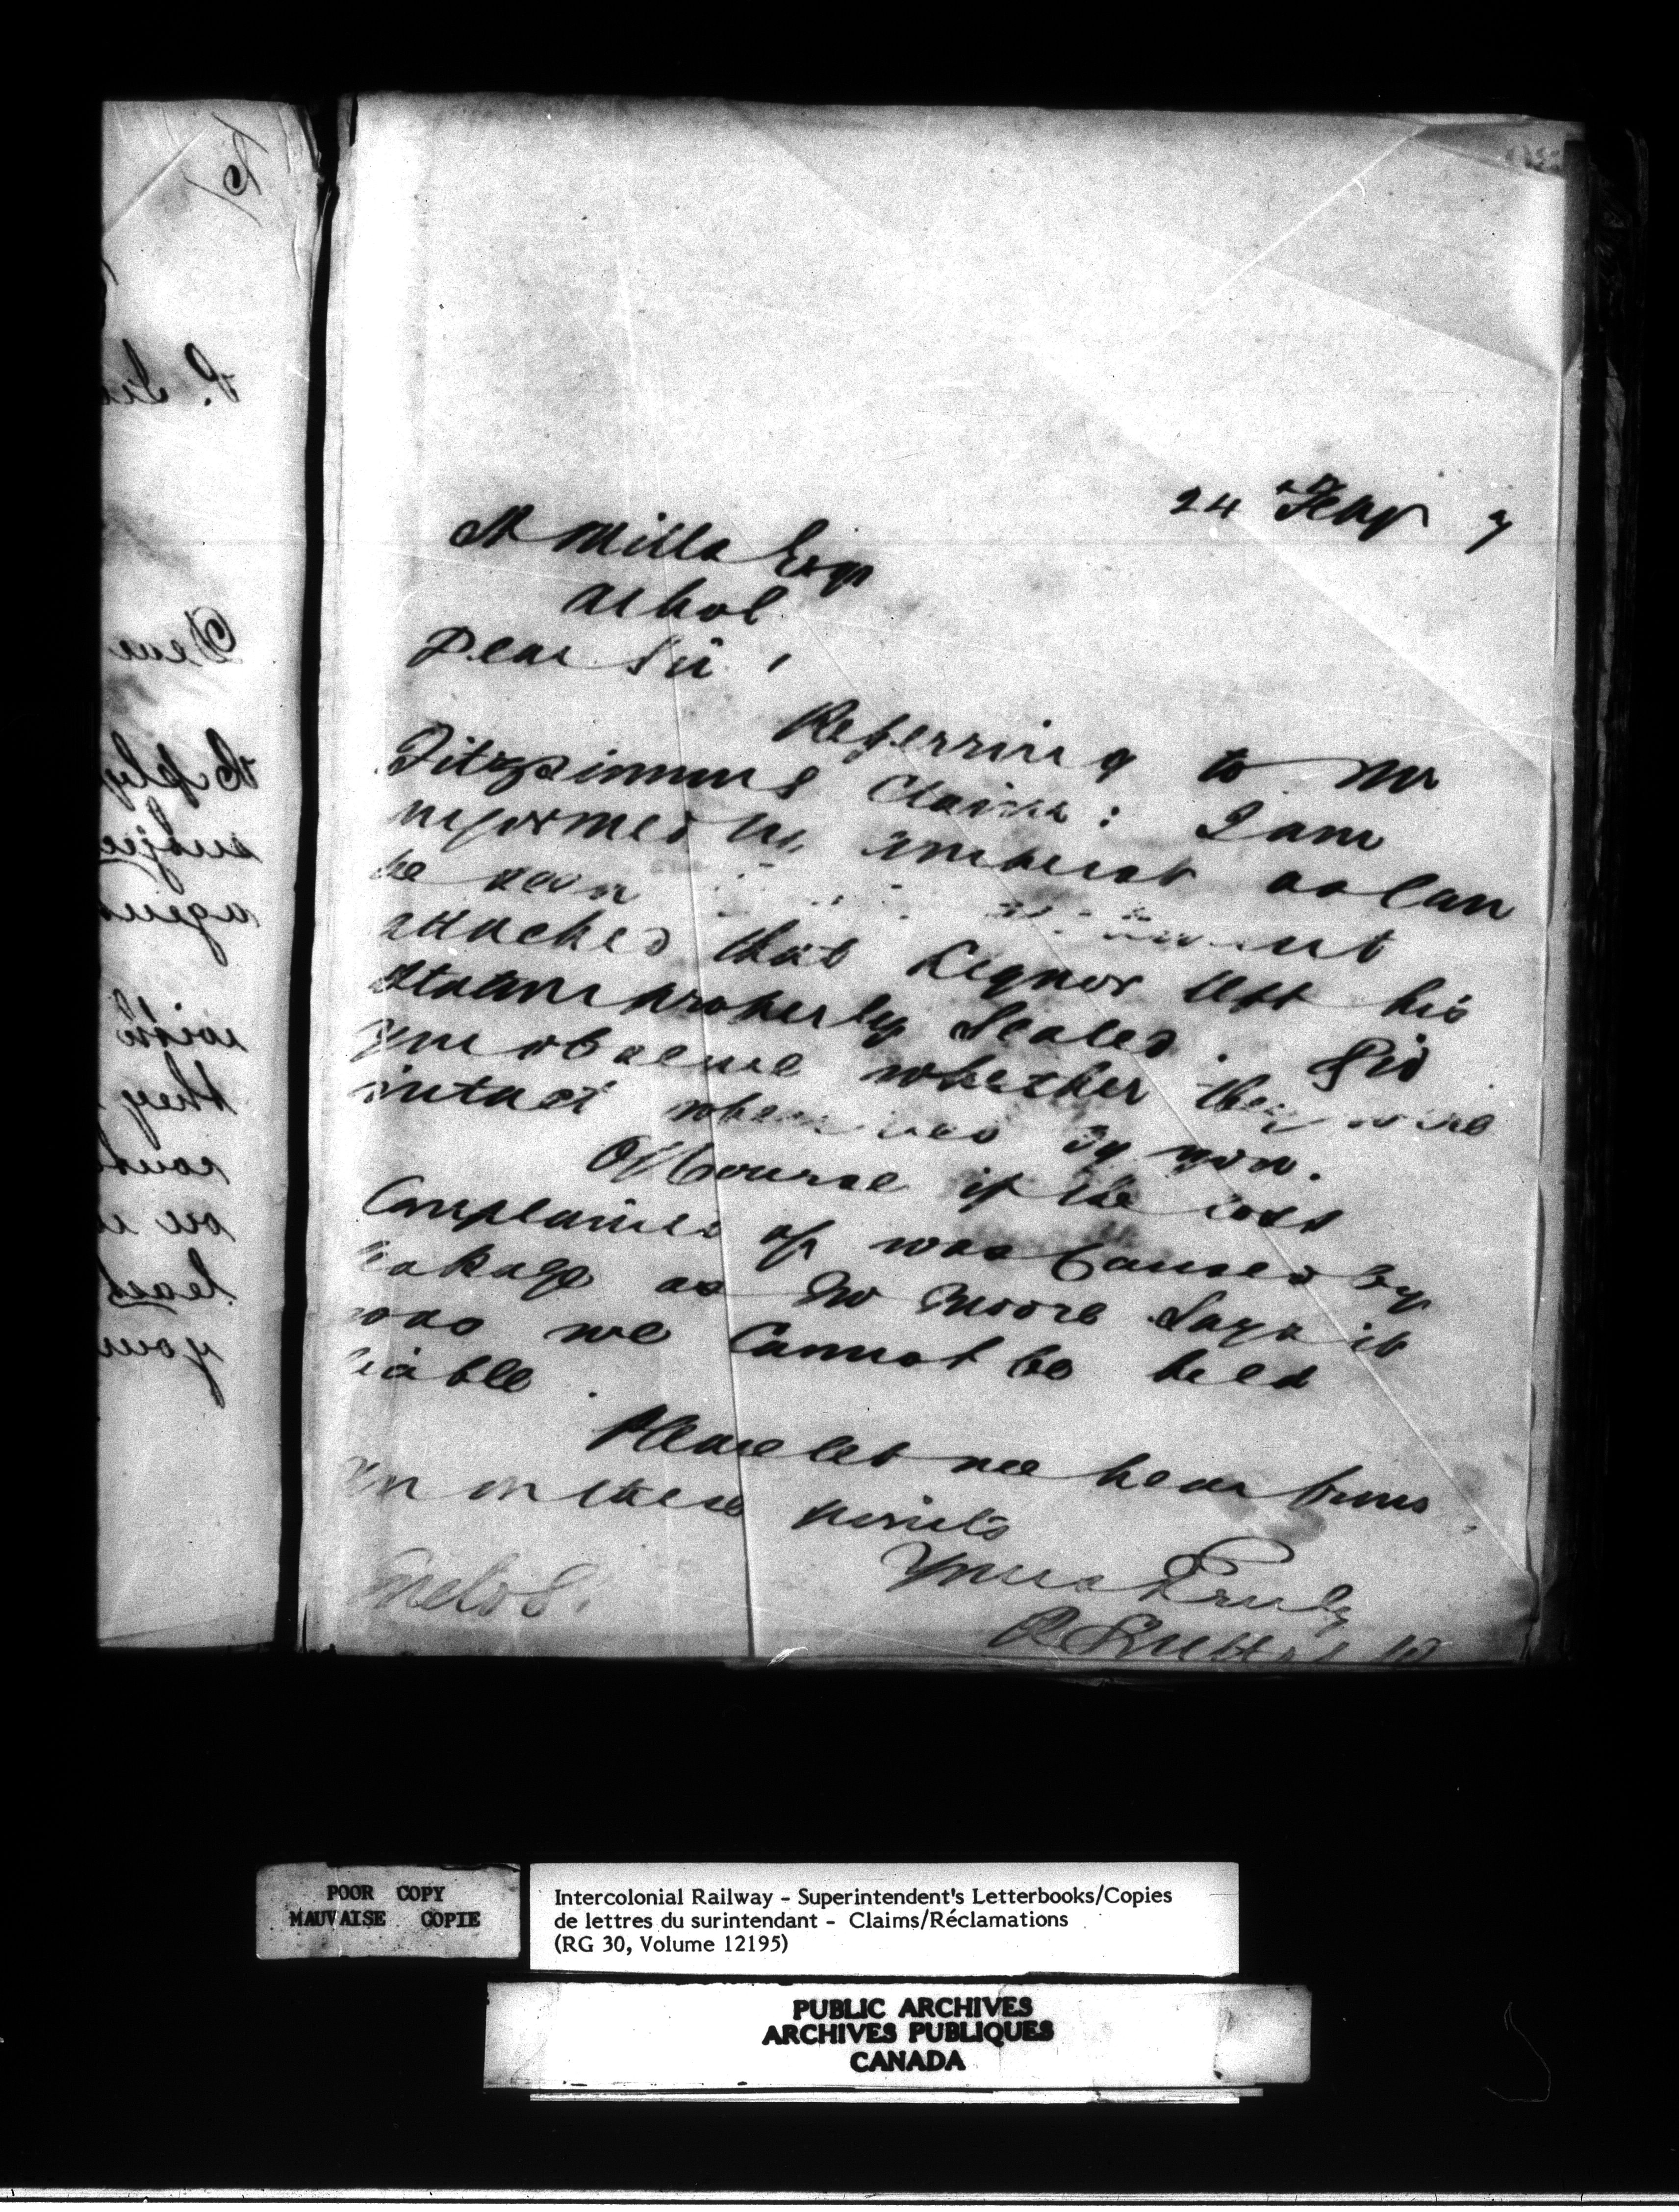 24 Feby 7
A Mills Esqr
Athol
Dear Sir,
Referring to Mr
Fitzsimmons Claim: I am
informed by Amherst as Can
be seen
attached that Liquor left his
Station properly Sealed. Did
you observe whether they were
intact when by you.
Of Course if the loss
Complained of was Caused by
leakage as Mr Moore Says it
was we Cannot be held
liable.
Please let me hear from
you on these points
Yours Truly
Enclos.
POOR COPY
MAUVAISE COPIE
Intercolonial Railway - Superintendent's Letterbooks/Copies
de lettres du surintendant - Claims/Réclamations
(RG 30, Volume 12195)
PUBLIC ARCHIVES
ARCHIVES PUBLIQUES
CANADA